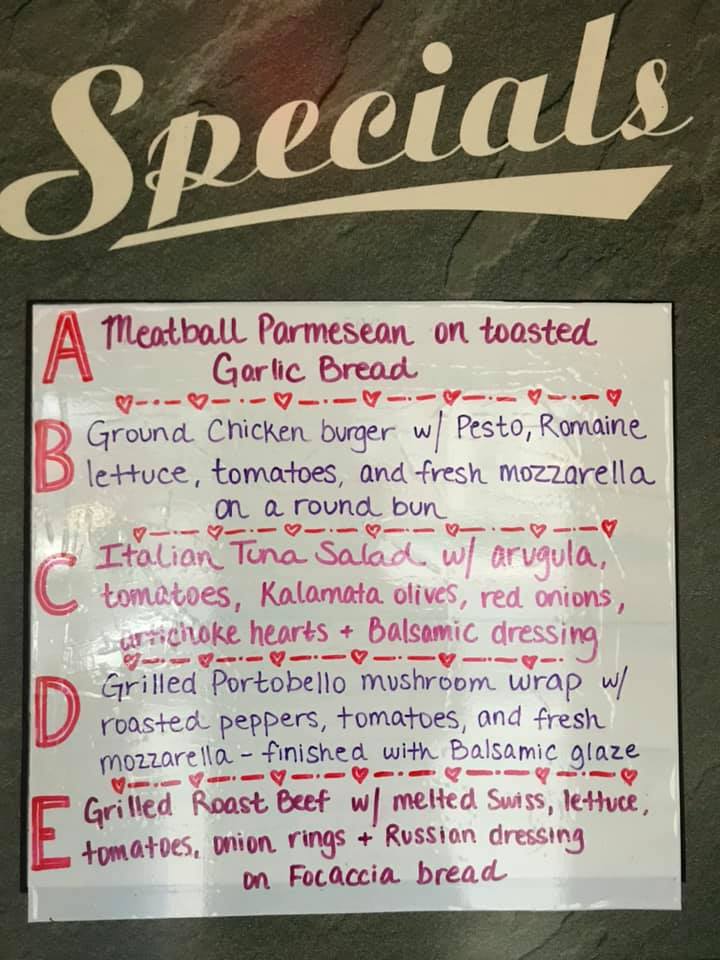 Specials
A Meatball Parmesean on toasted
Garlic Bread
B Ground Chicken burger w/ Pesto, Romaine
lettuce, tomatoes, and fresh mozzarella
on a round bun
C Italian Tuna Salad w/ arugula,
tomatoes, Kalamata olives, red onions,
artichoke hearts + Balsamic dressing
D Grilled Portobello mushroom wrap w/
roasted peppers, tomatoes, and fresh
mozzarella - finished with Balsamic glaze
E Grilled Roast Beef w/ melted Swiss, lettuce,
tomatoes, onion rings + Russian dressing
on Focaccia bread